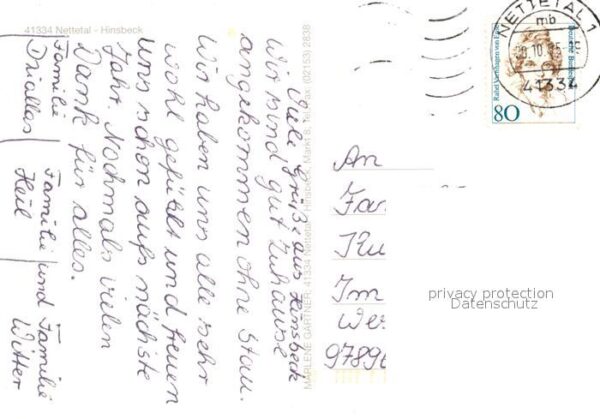 41334 Nettetal - Hinsbeck
Viele Grüße aus Hinsbeck
Wir sind gut zuhause
angekommen ohne Stau.
Wir haben uns alle sehr
wohl gefühlt und freuen
uns schon aufs nächste
Jahr. Nochmals vielen
Dank für alles.
Familie
Driallas
Familie
Heil
und Familie
Witter
MARLENE GARTNER 41334 Nettetal - Hinsbeck, Markt 8, Tel./Fax (02153) 2838
NETTETAL 1
mb
41334
Rahel Varnhagen von Ense
Deutsche Bundespost
80
An
Fam
Im
Wer
97896
privacy protection
Datenschutz